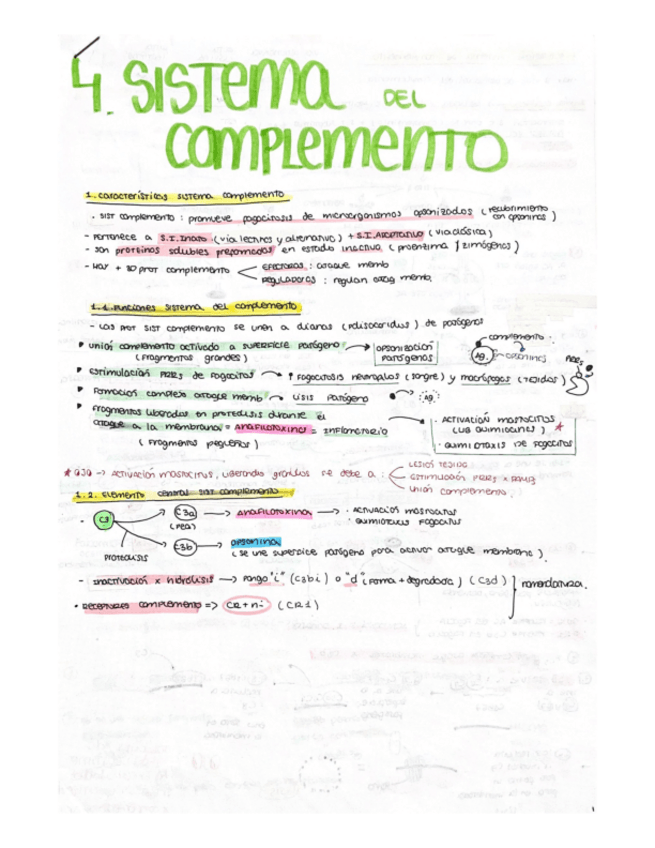 4. SISTEMA DEL
COMPLEMENTO
1. Características sistema complemento
. SIST complemento : promueve fagocitosis de microorganismos opsonizados (recubrimiento con opsoninas)
- Pertenece a S.I. Innato (vía lectinas y alternativa) + S.I. Adaptativo (vía clásica)
- Son proteínas solubles preformadas en estado inactivo (proenzima / zimógenos)
- Hay + 30 prot complemento
EFECTORAS : ataque memb
REGULADORAS : regulan ataq memb.
1.1. Funciones sistema del complemento
- Las prot sist complemento se unen a dianas (polisacáridos) de patógenos
unión complemento activado a superficie patógeno → opsonización patógenos
(fragmentos grandes)
complemento
Ag.
opsoninas
PRRs
Estimulación PRRs de fagocitos → ↑ Fagocitosis neutrófilos (sangre) y macrófagos (tejidos)
Formación complejo ataque memb → Lisis patógeno
Ag
Fragmentos liberados en proteólisis durante el
ataque a la membrana = ANAFILOTOXINAS = INFLAMATORIO
(fragmentos pequeños)
· ACTIVACIÓN MASTOCITOS
(LIB QUIMIOCINAS) ★
· QUIMIOTAXIS DE FAGOCITOS
★ OJO → Activación mastocitos, liberando gránulos se debe a :
LESIÓN TEJIDO
ESTIMULACIÓN PRRs x PAMPs
Unión complemento.
1.2. Elemento central sist complemento
- C3
PROTEÓLISIS
C3a → ANAFILOTOXINA → · Activación mastocitos
(PEQ)
· Quimiotaxis fagocitos
C3b → OPSONINA
(se une superficie patógeno para activar ataque membrana).
- Inactivación x hidrólisis → Pongo "i" (C3bi) o "d" (forma + degradada) (C3d)
nomenclatura.
· Receptores complemento => CR + nº (CR1)